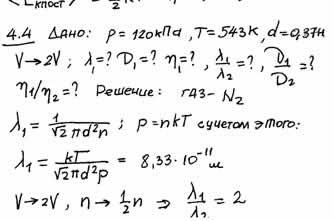 ⟨E кпост⟩ = 1/2 k
4.4 Дано: p = 120 кПа, T = 543 К, d = 0,37 н
V → 2V; λ₁ = ? D₁ = ? η₁ = ?, λ₁/λ₂ = ?, D₁/D₂ = ?
η₁/η₂ = ? Решение: газ - N₂
λ₁ = 1/(√2 πd²n); p = nkT с учетом этого:
λ₁ = kT/(√2 πd²p) = 8,33·10⁻¹¹ м
V → 2V, n → 1/2 n ⇒ λ₁/λ₂ = 2